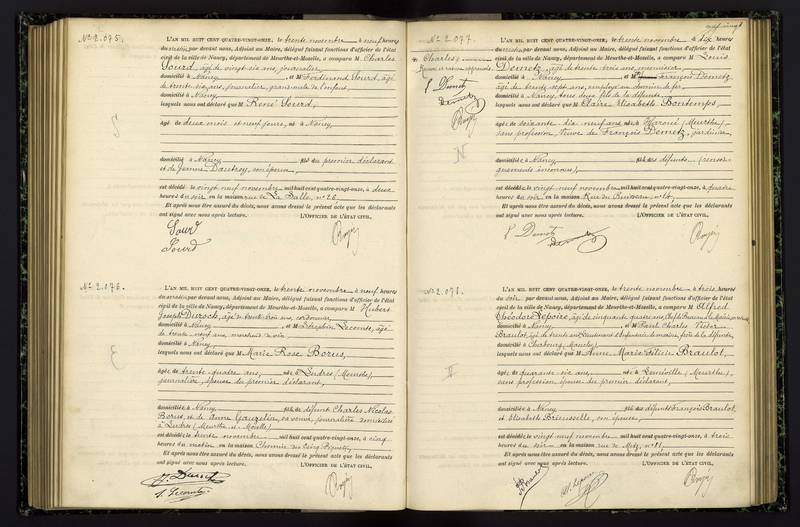 No 2.075.
L'AN MIL HUIT CENT QUATRE-VINGT-ONZE, le trente novembre à neuf heures
du matin par devant nous, Adjoint au Maire, délégué faisant fonctions d'officier de l'état
civil de la ville de Nancy, département de Meurthe-et-Moselle, a comparu M Charles
Sourd, âgé de vingt-six ans, journalier,
domicilié à Nancy, et M Ferdinand Sourd, âgé
de trente-six ans, journalier, grand-oncle de l'enfant,
domicilié à Nancy,
lesquels nous ont déclaré que René Sourd,
âgé de deux mois et neuf jours, né à Nancy,
domicilié à Nancy, fils du premier déclarant
et de Jeanne Dautrey, son épouse,
est décédé le vingt neuf novembre mil huit cent quatre-vingt-onze, à deux
heures du soir en la maison rue de La Salle, no 26.
Et après nous être assuré du décès, nous avons dressé le présent acte que les déclarants
ont signé avec nous après lecture. L'OFFICIER DE L'ÉTAT CIVIL,
Sourd
Sourd
No 2.076.
L'AN MIL HUIT CENT QUATRE-VINGT-ONZE, le trente novembre à neuf heures
du matin par devant nous, Adjoint au Maire, délégué faisant fonctions d'officier de l'état
civil de la ville de Nancy, département de Meurthe-et-Moselle, a comparu M Hubert
Joseph Duroch, âgé de trente trois ans, cordonnier,
domicilié à Nancy, et M Séraphin Lecomte, âgé
de trente neuf ans,
domicilié à Nancy,
lesquels nous ont déclaré que Marie Rose Borus,
âgée de trente quatre ans, née à Ludres (Meurthe),
journalière, épouse du premier déclarant,
domiciliée à Nancy, fille de défunt Charles Nicolas
Borus, et de Anne Gaugelin, sa veuve, journalière domiciliée
à Ludres (Meurthe et Moselle)
est décédée le trente novembre mil huit cent quatre-vingt-onze, à cinq
heures du matin en la maison Chemin des Cinq Piquets,
Et après nous être assuré du décès, nous avons dressé le présent acte que les déclarants
ont signé avec nous après lecture. L'OFFICIER DE L'ÉTAT CIVIL,
S. Lecomte
No 2.077.
L'AN MIL HUIT CENT QUATRE-VINGT-ONZE, le trente novembre à dix heures
du matin par devant nous, Adjoint au Maire, délégué faisant fonctions d'officier de l'état
civil de la ville de Nancy, département de Meurthe-et-Moselle, a comparu M Louis
Demetz, âgé de trente trois ans, menuisier,
domicilié à Nancy, et M François Demetz,
âgé de trente sept ans, employé au chemin de fer,
domicilié à Nancy, tous deux fils de la défunte,
lesquels nous ont déclaré que Claire Elisabeth Bontemps,
âgée de soixante dix neuf ans née à Haroué (Meurthe)
sans profession, veuve de François Demetz, jardinier,
domiciliée à Nancy, fille des défunts (rensei-
gnements inconnus),
est décédée le vingt neuf novembre mil huit cent quatre-vingt-onze, à quatre
heures du soir en la maison Rue du Ruisseau no 14,
Et après nous être assuré du décès, nous avons dressé le présent acte que les déclarants
ont signé avec nous après lecture. L'OFFICIER DE L'ÉTAT CIVIL,
No 2.078.
L'AN MIL HUIT CENT QUATRE-VINGT-ONZE, le trente novembre à trois heures
du soir par devant nous, Adjoint au Maire, délégué faisant fonctions d'officier de l'état
civil de la ville de Nancy, département de Meurthe-et-Moselle, a comparu M Alfred
Théodore Lepoire, âgé de cinquante quatre ans,
domicilié à Nancy, et M Paul Charles Victor
Braulot, âgé de trente ans Lieutenant d'Infanterie de marine,
domicilié à
lesquels nous ont déclaré que Anne Marie Félicie Braulot,
âgée de quarante six ans, née à Lunéville (Meurthe),
sans profession épouse du premier déclarant,
domiciliée à Nancy, fille des défunts François Braulot,
et Elisabeth son épouse,
est décédée le vingt neuf novembre mil huit cent quatre-vingt-onze, à trois
heures du soir en la maison rue de Metz, no
Et après nous être assuré du décès, nous avons dressé le présent acte que les déclarants
ont signé avec nous après lecture. L'OFFICIER DE L'ÉTAT CIVIL,